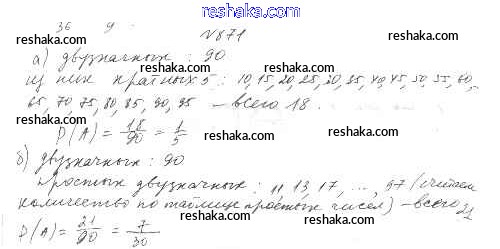 36 9
№871
а) двузначных : 90
из них кратных 5 : 10, 15, 20, 25, 30, 35, 40, 45, 50, 55, 60,
65, 70, 75, 80, 85, 90, 95 – всего 18.
P(A) = 18/90 = 1/5
б) двузначных : 90
простых двузначных : 11, 13, 17, ..., 97 (считаем
количество по таблице простых чисел) – всего 21
P(A) = 21/90 = 7/30
reshaka.com reshaka.com reshaka.com
reshaka.com reshaka.com reshaka.com
reshaka.com reshaka.com reshaka.com
reshaka.com reshaka.com reshaka.com
reshaka.com reshaka.com reshaka.com